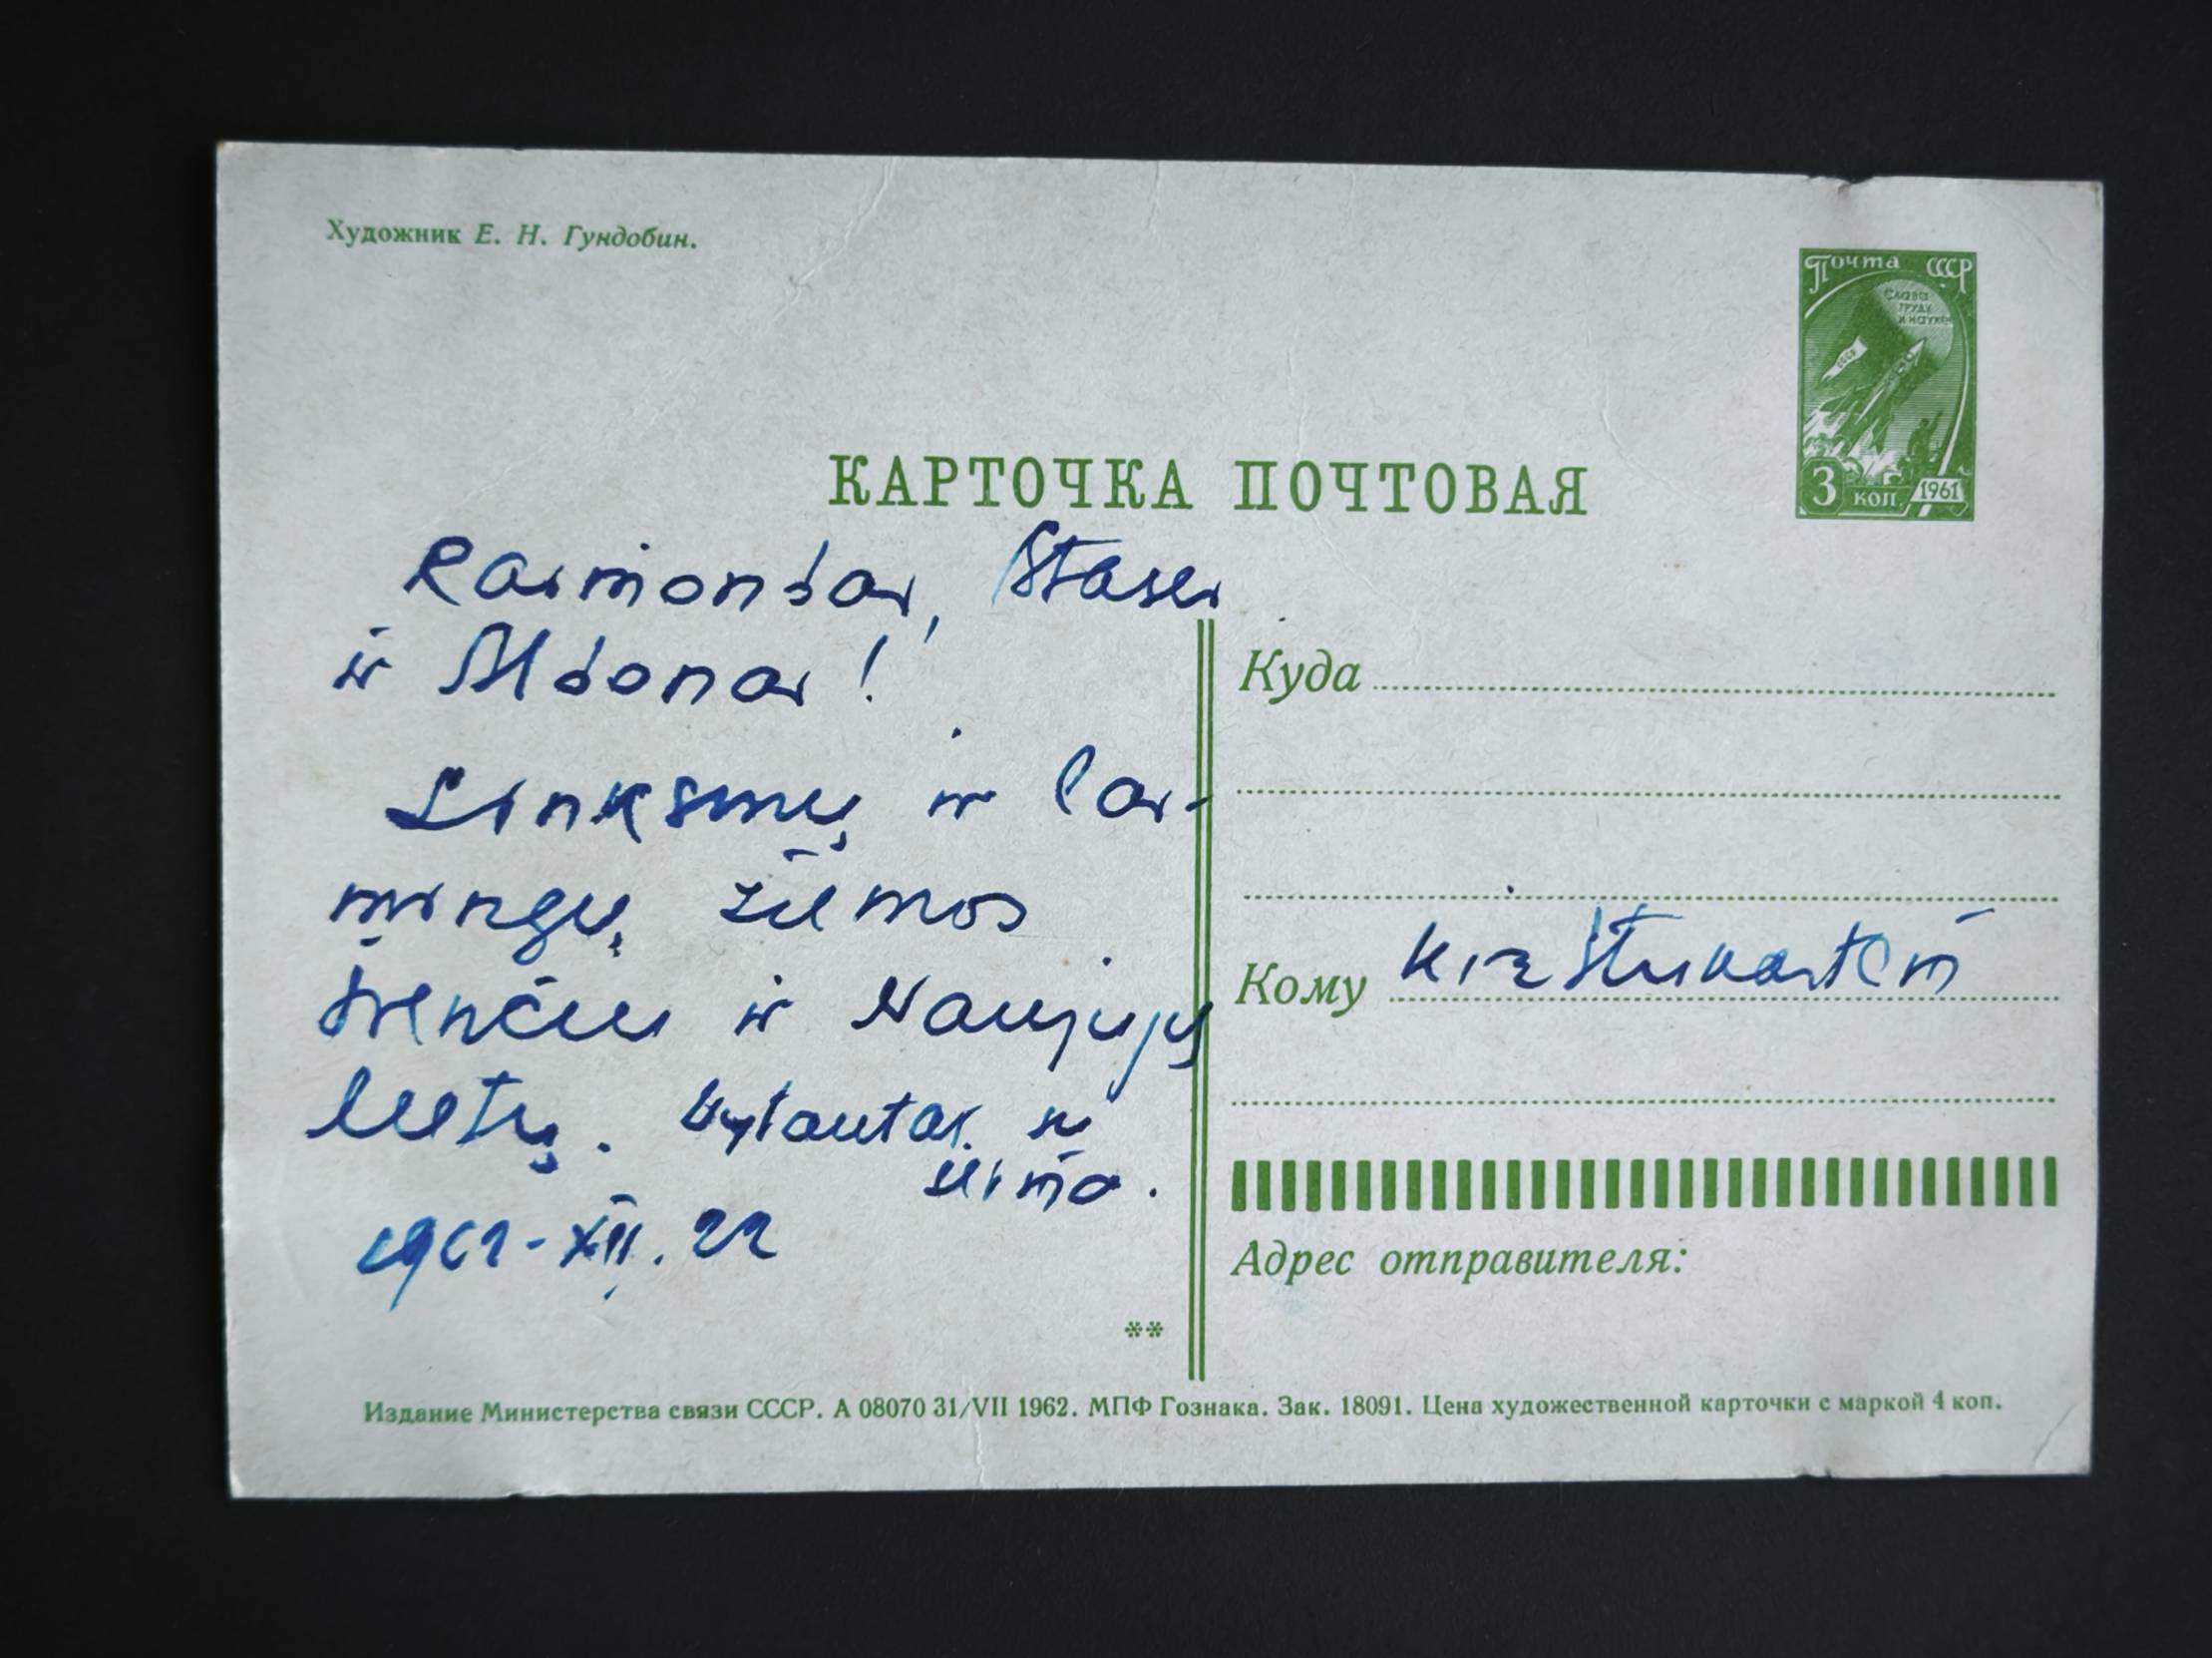 Художник Е. Н. Гундобин.
Почта СССР
Слава
труду
и науке
СССР
3 коп. 1961
КАРТОЧКА ПОЧТОВАЯ
Raimondai, Stasei
ir Aldonai!
Linksmų ir lai-
mingų žiemos
švenčių ir Naujųjų
Metų. Vytautas ir
Irma.
1962-XII.22
Куда
Кому
Адрес отправителя:
**
Издание Министерства связи СССР. А 08070 31/VII 1962. МПФ Гознака. Зак. 18091. Цена художественной карточки с маркой 4 коп.